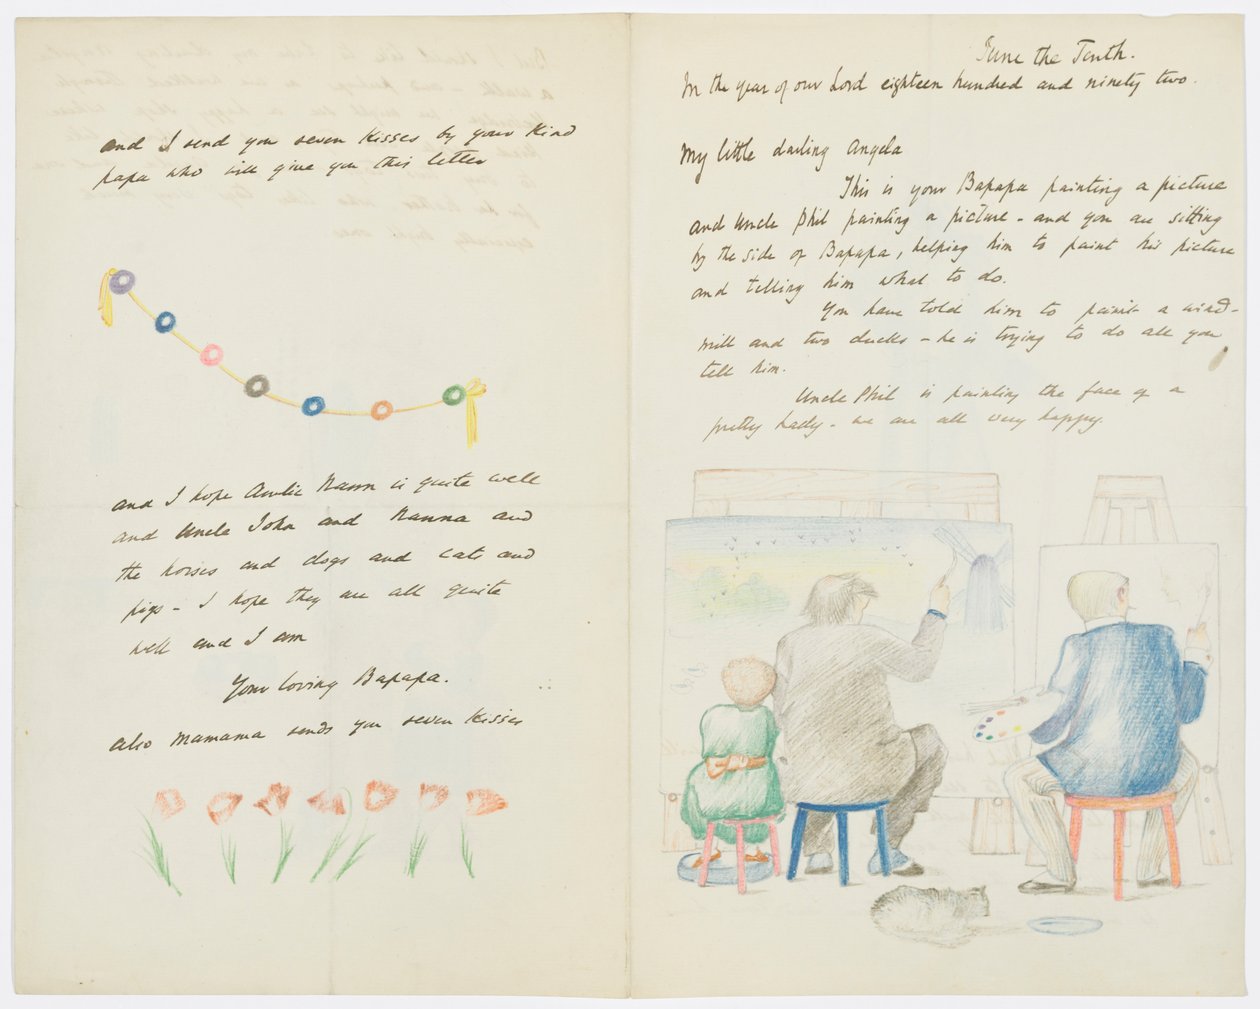 June the Tenth.
In the year of our Lord eighteen hundred and ninety two.
My little darling Angela
This is your Bapapa painting a picture
and Uncle Phil painting a picture - and you are sitting
by the side of Bapapa, helping him to paint his picture
and telling him what to do.
You have told him to paint a wind-
mill and two ducks - he is trying to do all you
tell him.
Uncle Phil is painting the face of a
pretty lady - we are all very happy
and I send you seven kisses by your kind
papa who will give you this letter
and I hope Auntie Nann is quite well
and Uncle John and Nanna and
the horses and dogs and cats and
pigs - I hope they are all quite
well and I am
Your loving Bapapa.
also Mamama sends you seven kisses